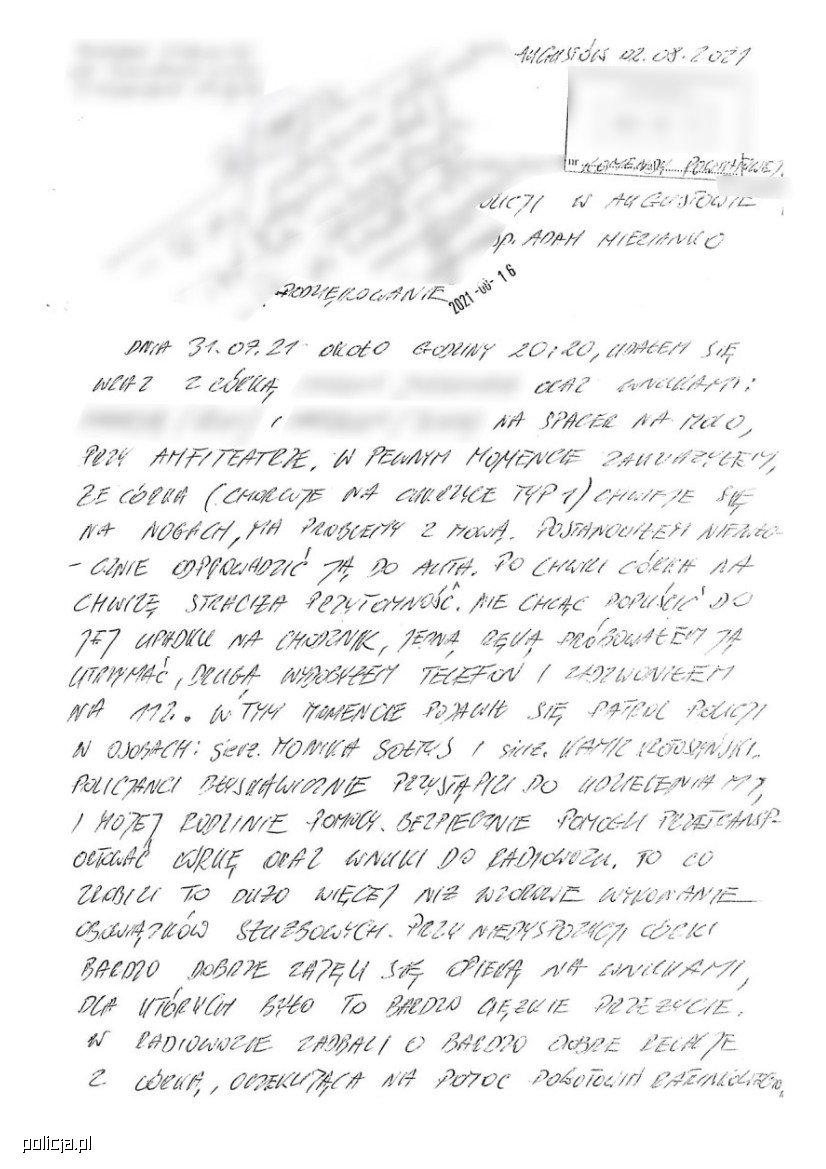 AUGUSTÓW 02.08.2021
nr KOMENDY POWIATOWEJ
OLICJI W AUGUSTOWIE
sp. ADAM MIEZIANKO
PODZIĘKOWANIE
2021-08-16
DNIA 31.07.21 OKOŁO GODZINY 20:20, UDAŁEM SIĘ
WRAZ Z CÓRKĄ ORAZ WNUKAMI:
I NA SPACER NA MOLO,
PRZY AMFITEATRZE. W PEWNYM MOMENCIE ZAUWAŻYŁEM,
ŻE CÓRKA (CHORUJE NA CUKRZYCE TYP 1) CHWIEJE SIĘ
NA NOGACH, MA PROBLEMY Z MOWĄ. POSTANOWIŁEM NIEZWŁO-
- CZNIE ODPROWADZIĆ JĄ DO AUTA. PO CHWILI CÓRKA NA
CHWILĘ STRACIŁA PRZYTOMNOŚĆ. NIE CHCĄC DOPUŚCIĆ DO
JEJ UPADKU NA CHODNIK, JEDNĄ RĘKĄ PRÓBOWAŁEM JĄ
UTRZYMAĆ, DRUGĄ WYDOBYŁEM TELEFON I ZADZWONIŁEM
NA 112. W TYM MOMENCIE POJAWIŁ SIĘ PATROL POLICJI
W OSOBACH: sierż. MONIKA SOŁTYS I sierż. KAMIL KŁOTOSZYŃSKI.
POLICJANCI BŁYSKAWICZNIE PRZYSTĄPILI DO UDZIELENIA MI,
I MOJEJ RODZINIE POMOCY. BEZPIECZNIE POMOGLI PRZETRANSP-
ORTOWAĆ CÓRKĘ ORAZ WNUKI DO RADIOWOZU. TO CO
ZROBILI TO DUŻO WIĘCEJ NIŻ WZOROWE WYKONANIE
OBOWIĄZKÓW SŁUŻBOWYCH. PRZY NIEDYSPOZYCJI CÓRKI
BARDZO DOBRZE ZAJĘLI SIĘ OPIEKĄ NA WNUKAMI,
DLA KTÓRYCH BYŁO TO BARDZO CIĘŻKIE PRZEŻYCIE.
W RADIOWOZIE ZADBALI O BARDZO DOBRE RELACJE
Z CÓRKĄ, OCZEKUJĄCĄ NA POMOC POGOTOWIA RATUNKOWEGO.
policja.pl